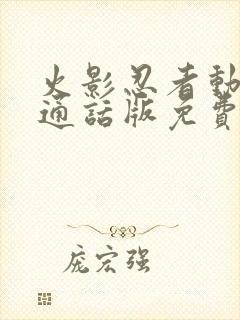 火影忍者動
通話版免費
龐宏强